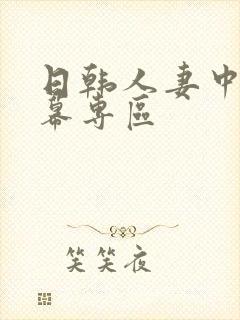 日韩人妻中
幕专區
笑笑夜